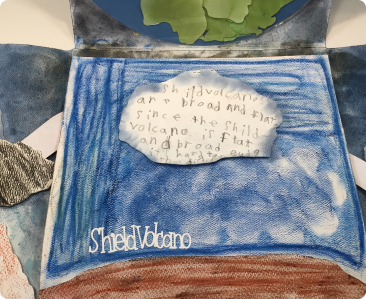 shildvolcano
are broad and flat
since the Shild
volcano is flat
and broad
hards
ShieldVolcano